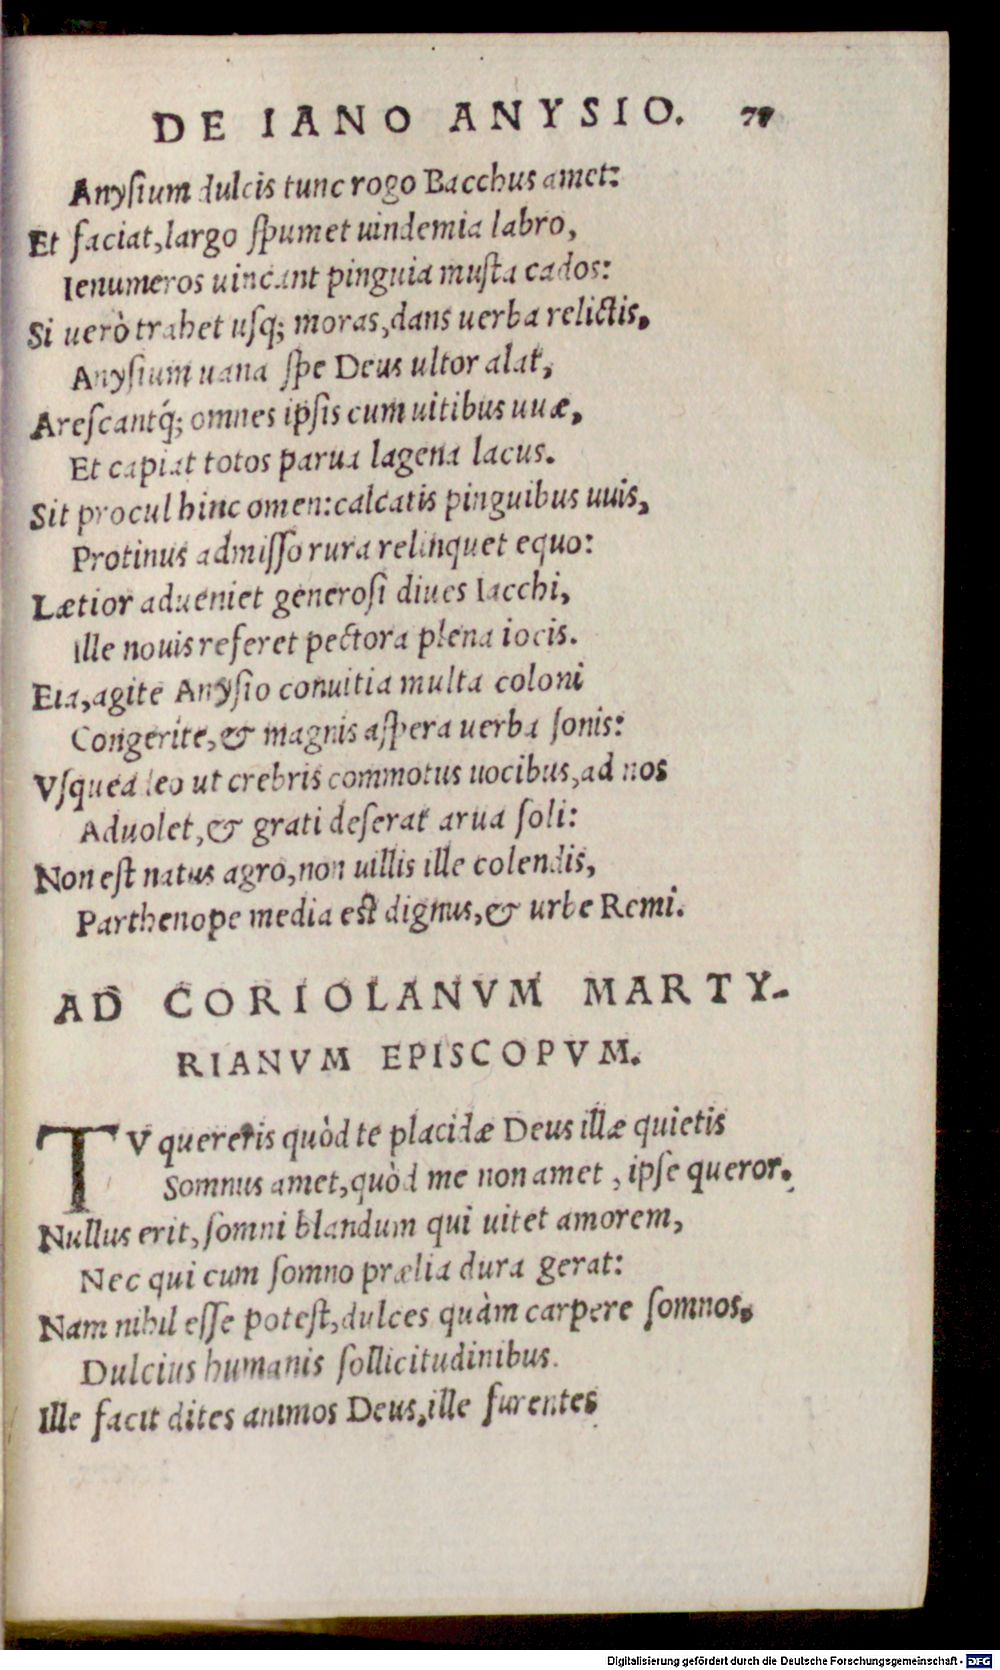 DE IANO ANYSIO.
Anyſium dulcis tunc rogo Bacchus amet:
Et faciat, largo ſpumet uindemia labro,
Ienumeros uincant pinguia muſta cados:
Si uerò trahet uſq; moras, dans uerba relictis,
Anyſium uana ſpe Deus ultor alat,
Areſcantq́; omnes ipſis cum uitibus uuæ,
Et capiat totos parua lagena lacus.
Sit procul hinc omen: calcatis pinguibus uuis,
Protinus admiſſo rura relinquet equo:
Lætior adueniet generoſi diues Iacchi,
Ille nouis referet pectora plena iocis.
Eia, agite Anyſio conuitia multa coloni
Congerite, & magnis aſpera uerba ſonis:
Vſqueadeo ut crebris commotus uocibus, ad nos
Aduolet, & grati deſerat arua ſoli:
Non eſt natus agro, non uillis ille colendis,
Parthenope media eſt dignus, & urbe Remi.
AD CORIOLANVM MARTY-
RIANVM EPISCOPVM.
TV quereris quòd te placidæ Deus illæ quietis
Somnus amet, quòd me non amet, ipſe queror.
Nullus erit, ſomni blandum qui uitet amorem,
Nec qui cum ſomno prælia dura gerat:
Nam nihil eſſe poteſt, dulces quàm carpere ſomnos,
Dulcius humanis ſollicitudinibus.
Ille facit dites animos Deus, ille furentes
Digitalisierung gefördert durch die Deutsche Forschungsgemeinschaft - DFG